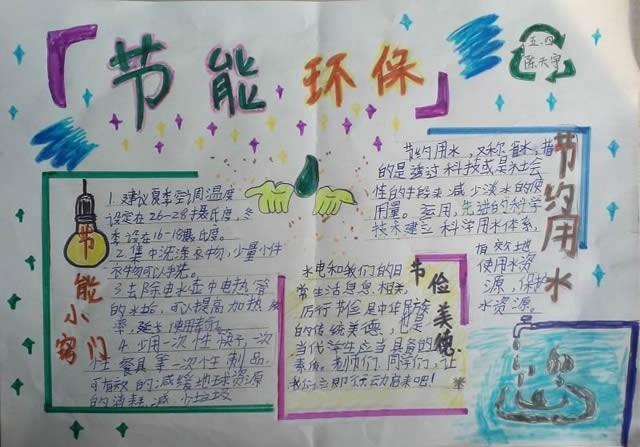 节能环保
五.四
陈天宇
节能小窍门
1.建议夏季空调温度
设定在26-28摄氏度,冬
季设在16-18摄氏度。
2.集中洗涤衣物,少量小件
衣物可以手洗。
3.去除电水壶中电热管
的水垢,可以提高加热
率,延长使用寿命。
4.少用一次性筷子,一次
性餐具等一次性制品
可有效的减缓地球资源
的消耗,减少垃圾
节约用水
节约用水,又称省水,指
的是透过科技或是社会
性的手段来减少淡水的使
用量。运用先进的科学
技术建立科学用水体系,
有效地
使用水资
源,保护
水资源。
节俭美德
水电和我们的日
常生活息息相关,
厉行节俭是中华民族
的传统美德,也是
当代学生应当具备的
素质。老师们、同学们,让
我们立即行动起来吧!